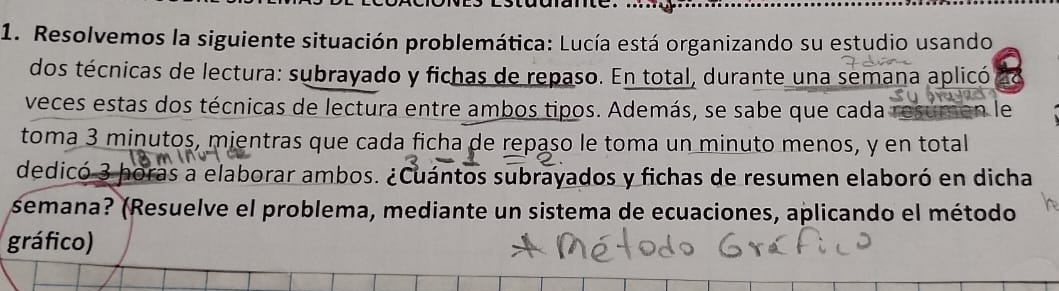 1. Resolvemos la siguiente situación problemática: Lucía está organizando su estudio usando
7 días
dos técnicas de lectura: subrayado y fichas de repaso. En total, durante una semana aplicó
subrayado
veces estas dos técnicas de lectura entre ambos tipos. Además, se sabe que cada resumen le
toma 3 minutos, mientras que cada ficha de repaso le toma un minuto menos, y en total
18 minutos
3 - 1 = 2.
dedicó 3 horas a elaborar ambos. ¿Cuántos subrayados y fichas de resumen elaboró en dicha
semana? (Resuelve el problema, mediante un sistema de ecuaciones, aplicando el método
gráfico)
* Método Gráfico